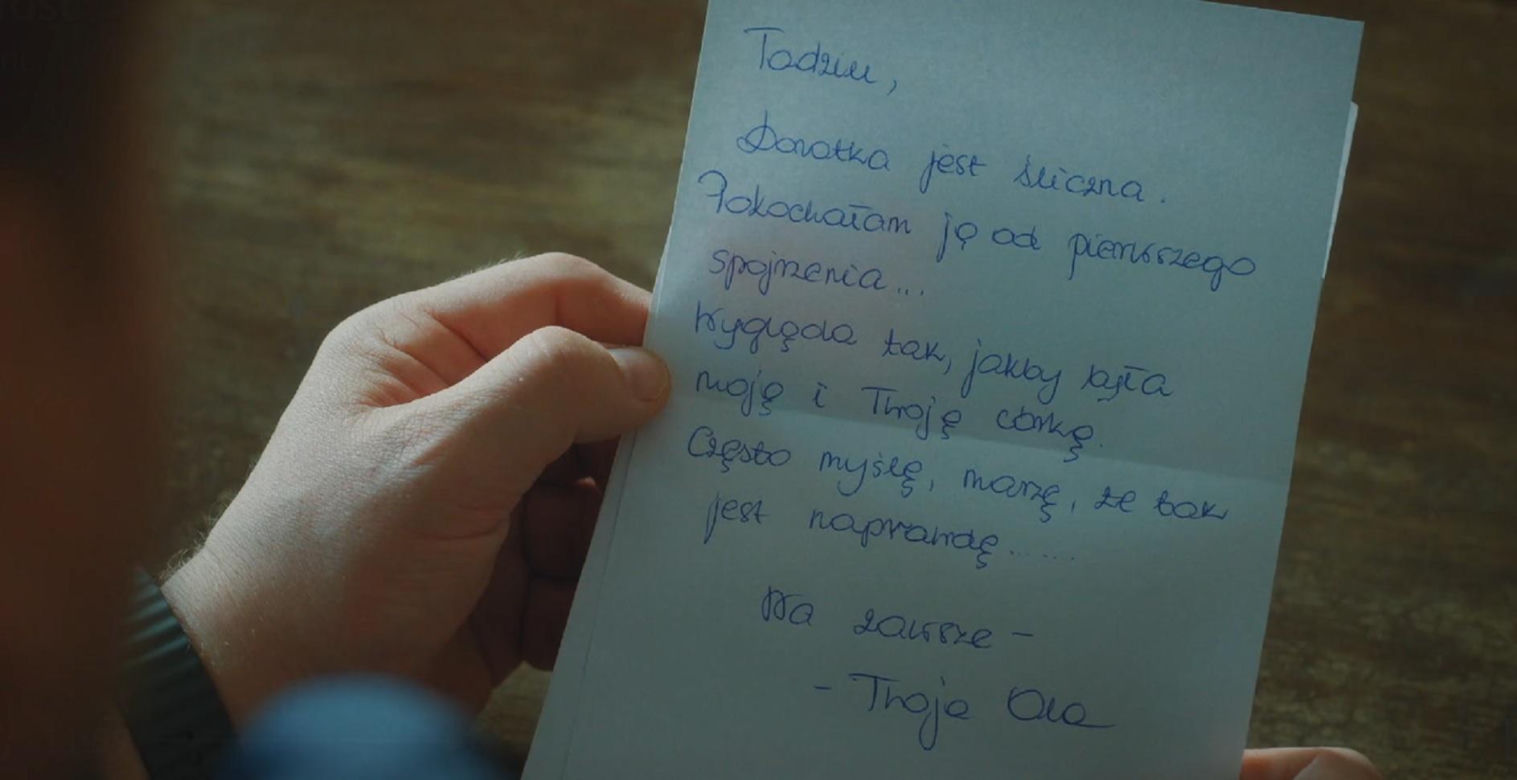 Tadziu,
Dorotka jest śliczna.
Pokochałam ją od pierwszego
spojrzenia...
Wygląda tak, jakby była
moją i Twoją córką.
Często myślę, marzę, że tak
jest naprawdę......
Na zawsze -
- Twoja Ola